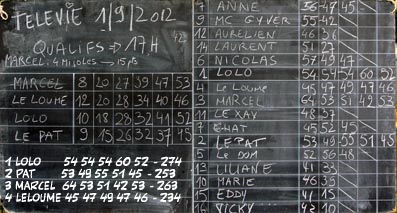 TELEVIE 1/9/2012
QUALIFS => 17H
MARCEL: 4 Mijoles -> 15 pts
MARCEL 8 20 27 39 47 53
LE LOUME 12 20 28 34 40 46
LOLO 10 18 29 32 41 52
LE PAT 9 15 26 32 37 45
1 LOLO 54 54 54 60 52 - 274
2 PAT 53 49 55 51 45 - 253
3 MARCEL 64 53 51 42 53 - 263
4 LELOUME 45 47 49 47 46 - 234
7 ANNE 56 47 45
9 MC GYVER 55 42
12 AURELIEN 46 36
14 LAURENT 51 27
6 NICOLAS 57 49 47
1 LOLO 54 54 54 60 52
4 LE LOUME 45 47 49 47 46
3 MARCEL 64 53 51 42 53
11 LE XAV 48 37
E-MAT 45 52 45
2 LE PAT 53 49 55 51 45
5 LE DOM 52 56 48
13 LILIANE 44 33
10 MARIE 46 39
15 EDDY 41
16 VICKY